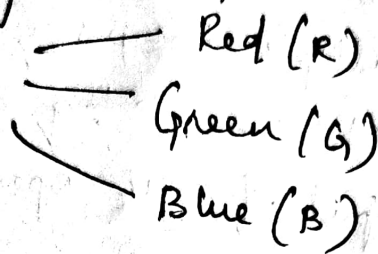 Red (R)
Green (G)
Blue (B)